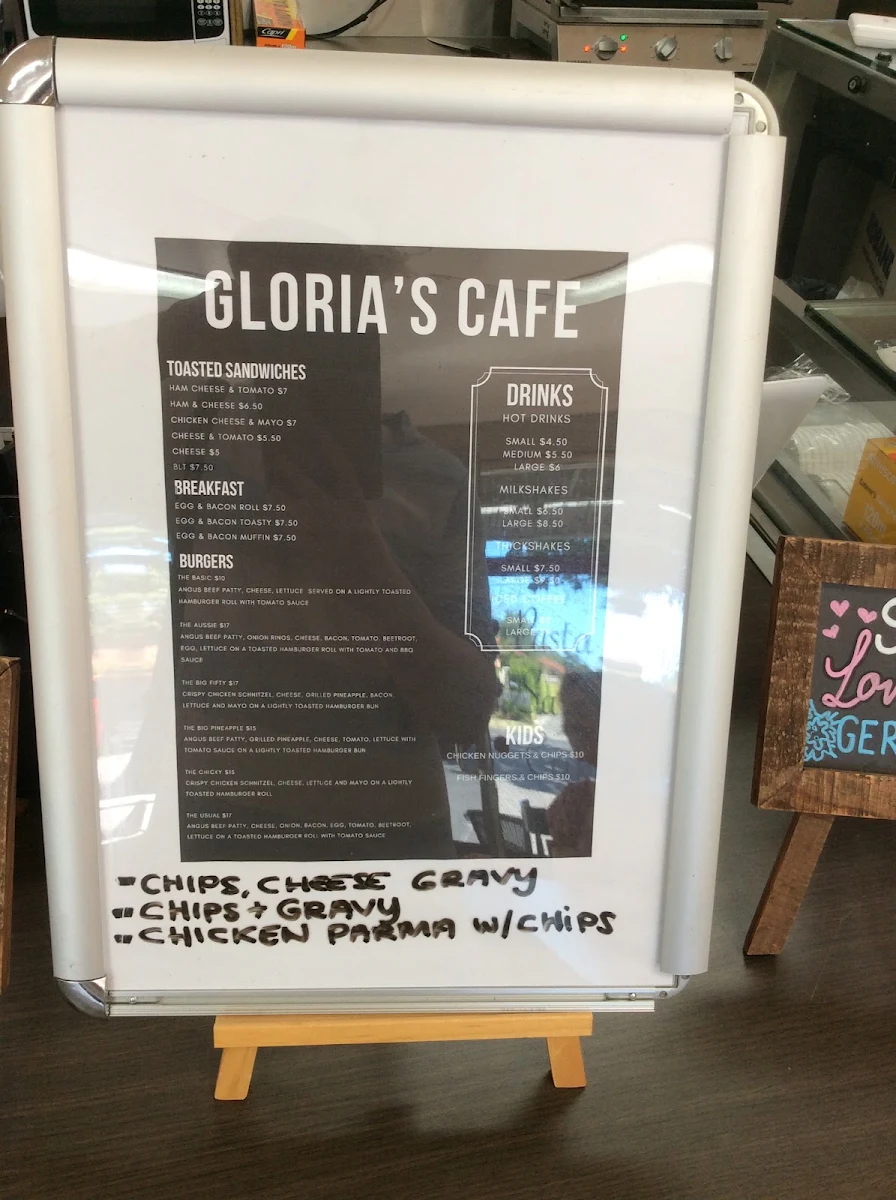 Capri
GLORIA'S CAFE
TOASTED SANDWICHES
HAM CHEESE & TOMATO $7
HAM & CHEESE $6.50
CHICKEN CHEESE & MAYO $7
CHEESE & TOMATO $5.50
CHEESE $5
BLT $7.50
BREAKFAST
EGG & BACON ROLL $7.50
EGG & BACON TOASTY $7.50
EGG & BACON MUFFIN $7.50
BURGERS
THE BASIC $10
ANGUS BEEF PATTY, CHEESE, LETTUCE SERVED ON A LIGHTLY TOASTED
HAMBURGER ROLL WITH TOMATO SAUCE
THE AUSSIE $17
ANGUS BEEF PATTY, ONION RINGS, CHEESE, BACON, TOMATO, BEETROOT,
EGG, LETTUCE ON A TOASTED HAMBURGER ROLL WITH TOMATO AND BBQ
SAUCE
THE BIG FIFTY $17
CRISPY CHICKEN SCHNITZEL, CHEESE, GRILLED PINEAPPLE, BACON,
LETTUCE AND MAYO ON A LIGHTLY TOASTED HAMBURGER BUN
THE BIG PINEAPPLE $15
ANGUS BEEF PATTY, GRILLED PINEAPPLE, CHEESE, TOMATO, LETTUCE WITH
TOMATO SAUCE ON A LIGHTLY TOASTED HAMBURGER BUN
THE CHICKY $15
CRISPY CHICKEN SCHNITZEL, CHEESE, LETTUCE AND MAYO ON A LIGHTLY
TOASTED HAMBURGER ROLL
THE USUAL $17
ANGUS BEEF PATTY, CHEESE, ONION, BACON, EGG, TOMATO, BEETROOT,
LETTUCE ON A TOASTED HAMBURGER ROLL WITH TOMATO SAUCE
DRINKS
HOT DRINKS
SMALL $4.50
MEDIUM $5.50
LARGE $6
MILKSHAKES
SMALL $6.50
LARGE $8.50
THICKSHAKES
SMALL $7.50
LARGE $9.50
ICED COFFEE
LARGE
KIDS
CHICKEN NUGGETS & CHIPS $10
FISH FINGERS & CHIPS $10
- CHIPS, CHEESE GRAVY
- CHIPS + GRAVY
- CHICKEN PARMA W/CHIPS